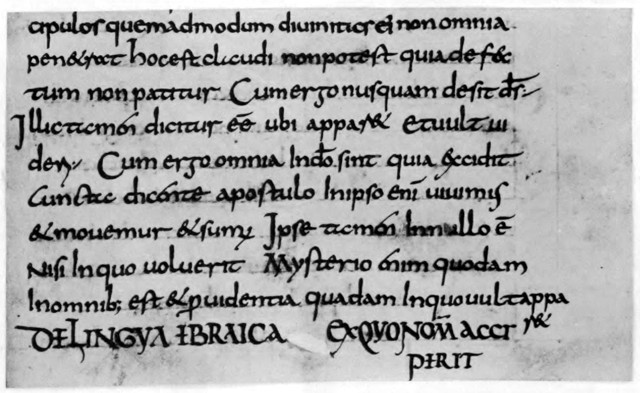 cipulos quemadmodum diuinitas ei non omnia
penetrat hoc est claudi non potest quia defec
tum non patitur Cum ergo nusquam desit dſ
Illic tamen dicitur eē ubi apparet et uult ui
deri Cum ergo omnia In dō sint quia accidit
cuncta dicente apostulo In ipso enī uiuimus
& mouemur & sumus Ipse tamen In nullo ē
nisi In quo uoluerit Mysterio enim quodam
In omnib; est & puidentia quadam In quo uult appa
ret
DE LINGVA EBRAICA EX QVO NOM̄ ACCI
PIRIT